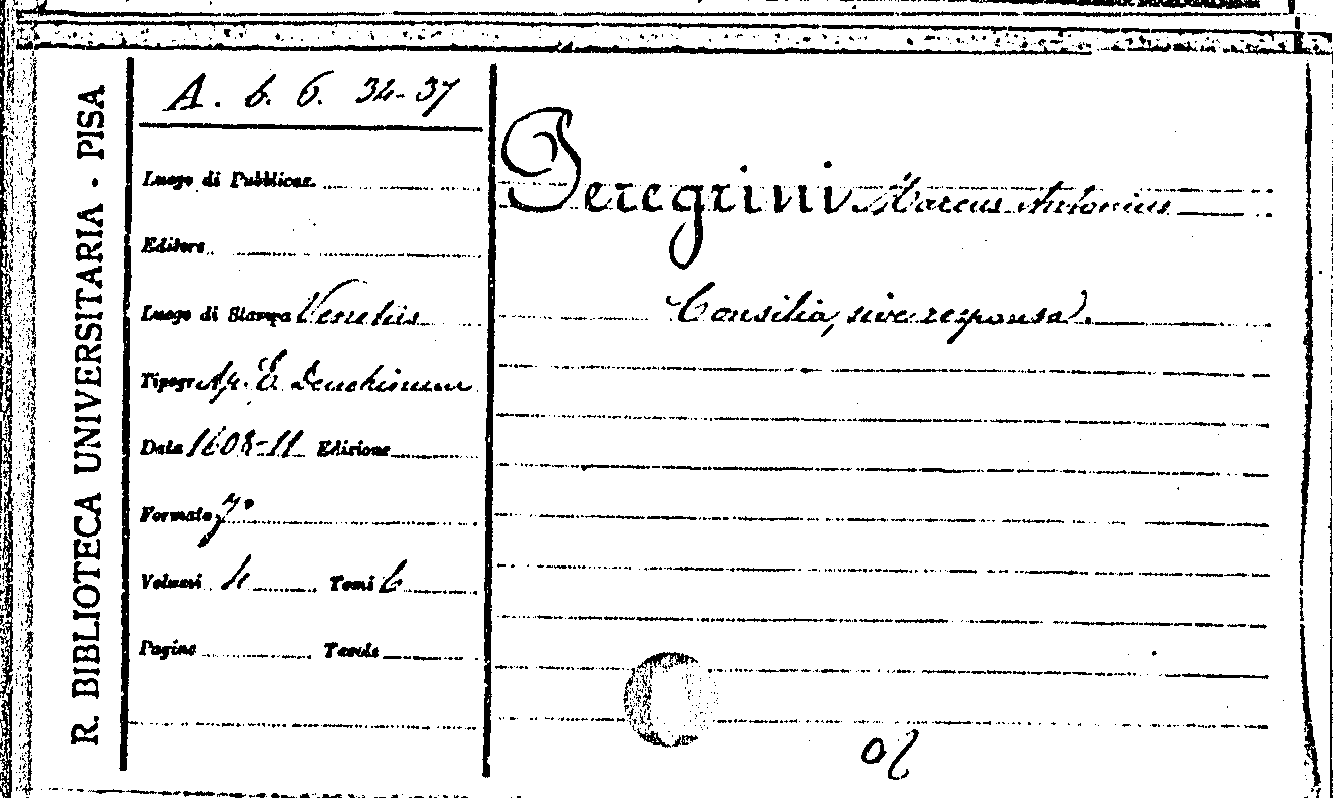 R. BIBLIOTECA UNIVERSITARIA - PISA
A. b. 6. 34-37
Luogo di Pubblicaz.
Editore
Luogo di Stampa Venetiis
Tipogr. Ap. E. Deuchinum
Data 1608-11 Edizione
Formato f°
Volumi 4 Tomi 6
Pagine Tavole
Peregrini Marcus Antonius
Consilia, sive responsa.